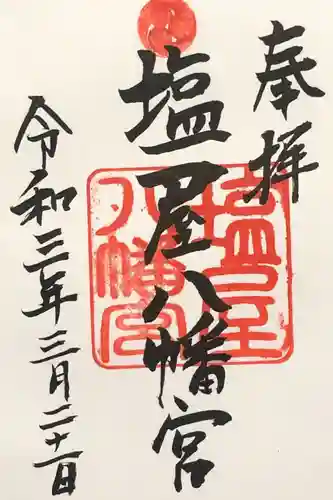 奉拝
塩屋八幡宮
塩屋八幡宮
令和三年三月二十一日